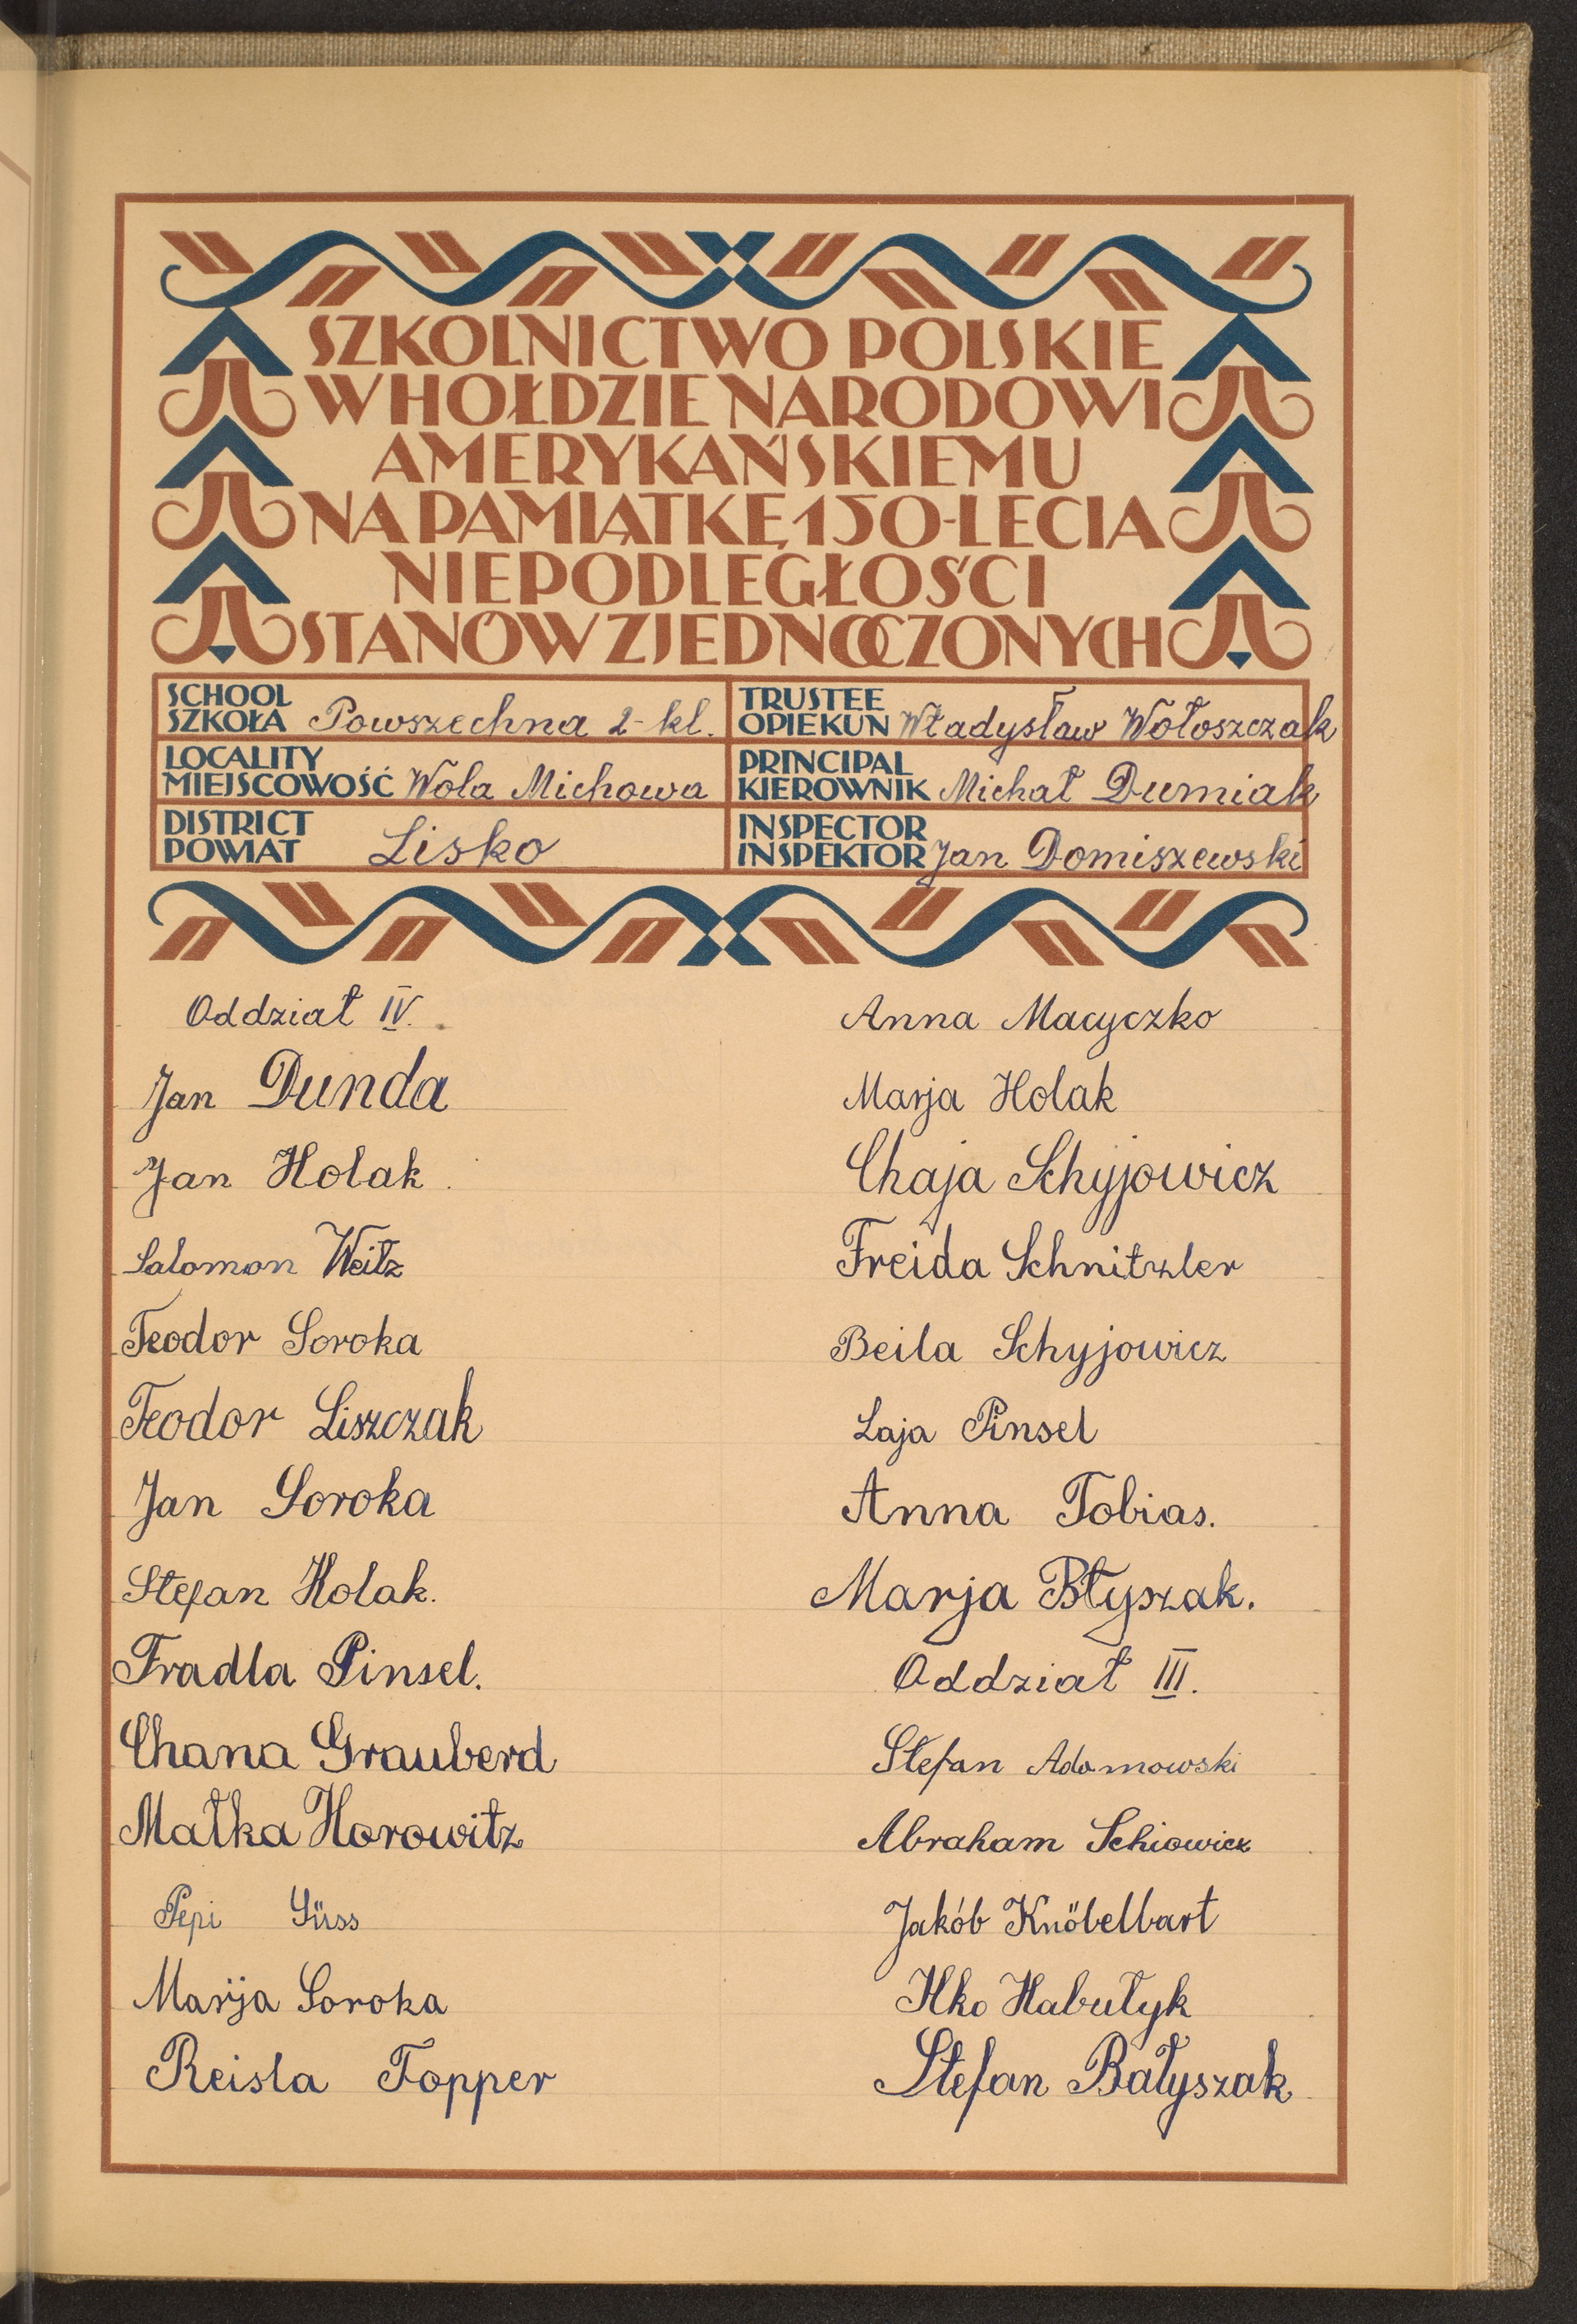 SZKOLNICTWO POLSKIE
W HOŁDZIE NARODOWI
AMERYKAŃSKIEMU
NA PAMIĄTKĘ 150-LECIA
NIEPODLEGŁOŚCI
STANÓW ZJEDNOCZONYCH
SCHOOL
SZKOŁA Powszechna 2-kl.
TRUSTEE
OPIEKUN Władysław Wołoszczak
LOCALITY
MIEJSCOWOŚĆ Wola Michowa
PRINCIPAL
KIEROWNIK Michał Dumiak
DISTRICT
POWIAT Lisko
INSPECTOR
INSPEKTOR Jan Domiszewski
Oddział IV.
Jan Dunda
Jan Holak
Salomon Weitz
Teodor Soroka
Teodor Liszczak
Jan Soroka
Stefan Holak.
Fradla Pinsel.
Chana Grauberd
Małka Horowitz
Pepi Süss
Marja Soroka
Reisla Topper
Anna Macyczko
Marja Holak
Chaja Schyjowicz
Freida Schnitzler
Beila Schyjowicz
Laja Pinsel
Anna Tobias.
Marja Błyszak.
Oddział III.
Stefan Adamowski
Abraham Schiowicz
Jakób Knöbelbart
Ilko Habułyk
Stefan Bałyszak